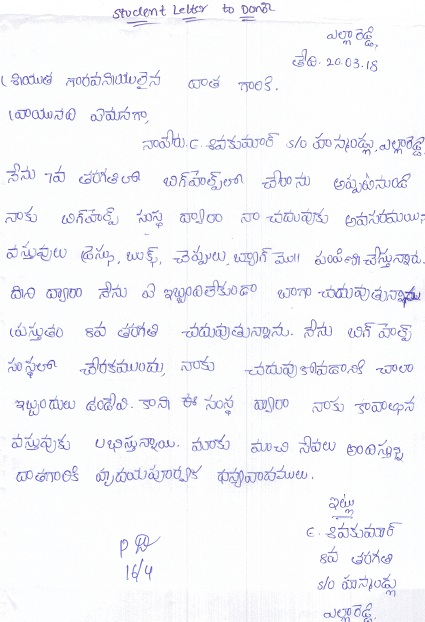 Student Letter to Donor
ఎల్లారెడ్డి,
తేది. 20.03.18
శ్రీయుత గౌరవనీయులైన దాత గారికి.
వ్రాయునది ఏమనగా,
నాపేరు. E. శివకుమార్ S/o పోచగుండ్లు, ఎల్లారెడ్డి.
నేను 7వ తరగతిలో బిగ్‌హెల్ప్‌లో చేరాను అప్పటినుండి
నాకు బిగ్‌హెల్ప్ సంస్థ ద్వారా నా చదువుకు అవసరమయిన
వస్తువులు డ్రెస్సు, బుక్స్, చెప్పులు, బ్యాగ్ మొ॥ పంపిణి చేస్తున్నారు.
దీని ద్వారా నేను ఏ ఇబ్బందిలేకుండా బాగా చదువుతున్నాను
ప్రస్తుతం 8వ తరగతి చదువుతున్నాను. నేను బిగ్ హెల్ప్
సంస్థలో చేరకముందు, నాకు చదువుకోవడానికి చాలా
ఇబ్బందులు ఉండేవి. కాని ఈ సంస్థ ద్వారా నాకు కావాల్సిన
వస్తువుకు లభిస్తున్నాయి. మాకు మంచి సేవలు అందిస్తున్న
దాతగారికి హృదయపూర్వక ధన్యవాదములు.
ఇట్లు
E. శివకుమార్
8వ తరగతి
S/o
ఎల్లారెడ్డి.
16/4